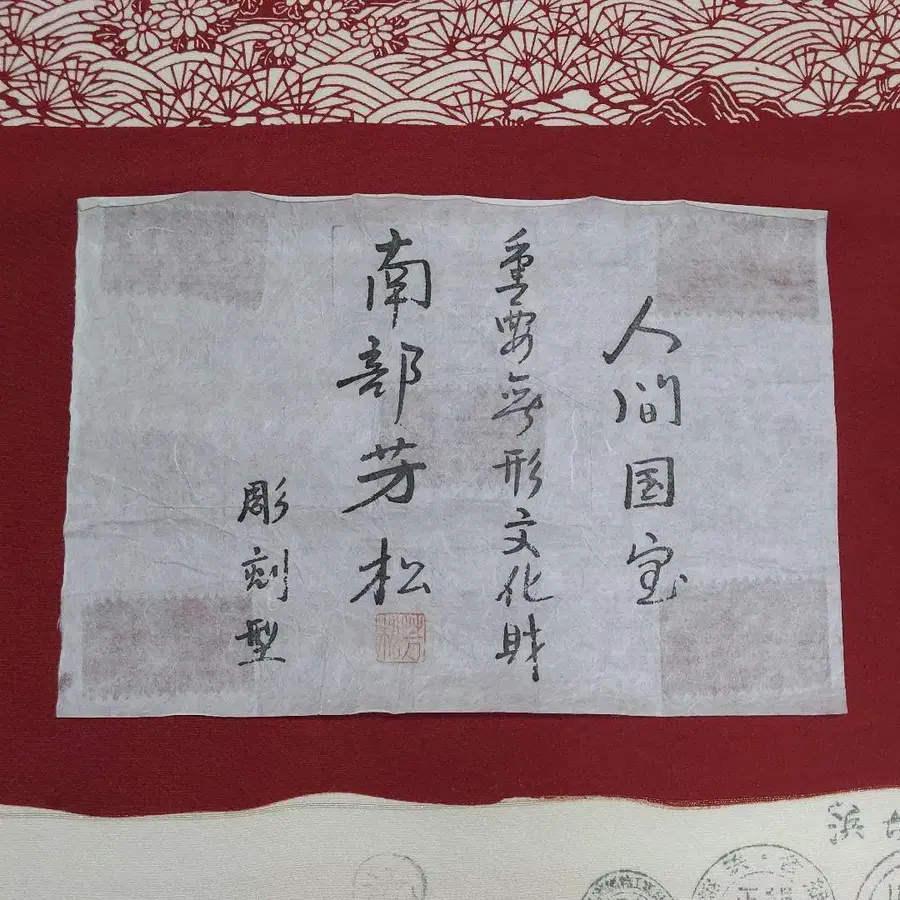 人间国宝
重要無形文化財
南部芳松
芳松
彫刻型